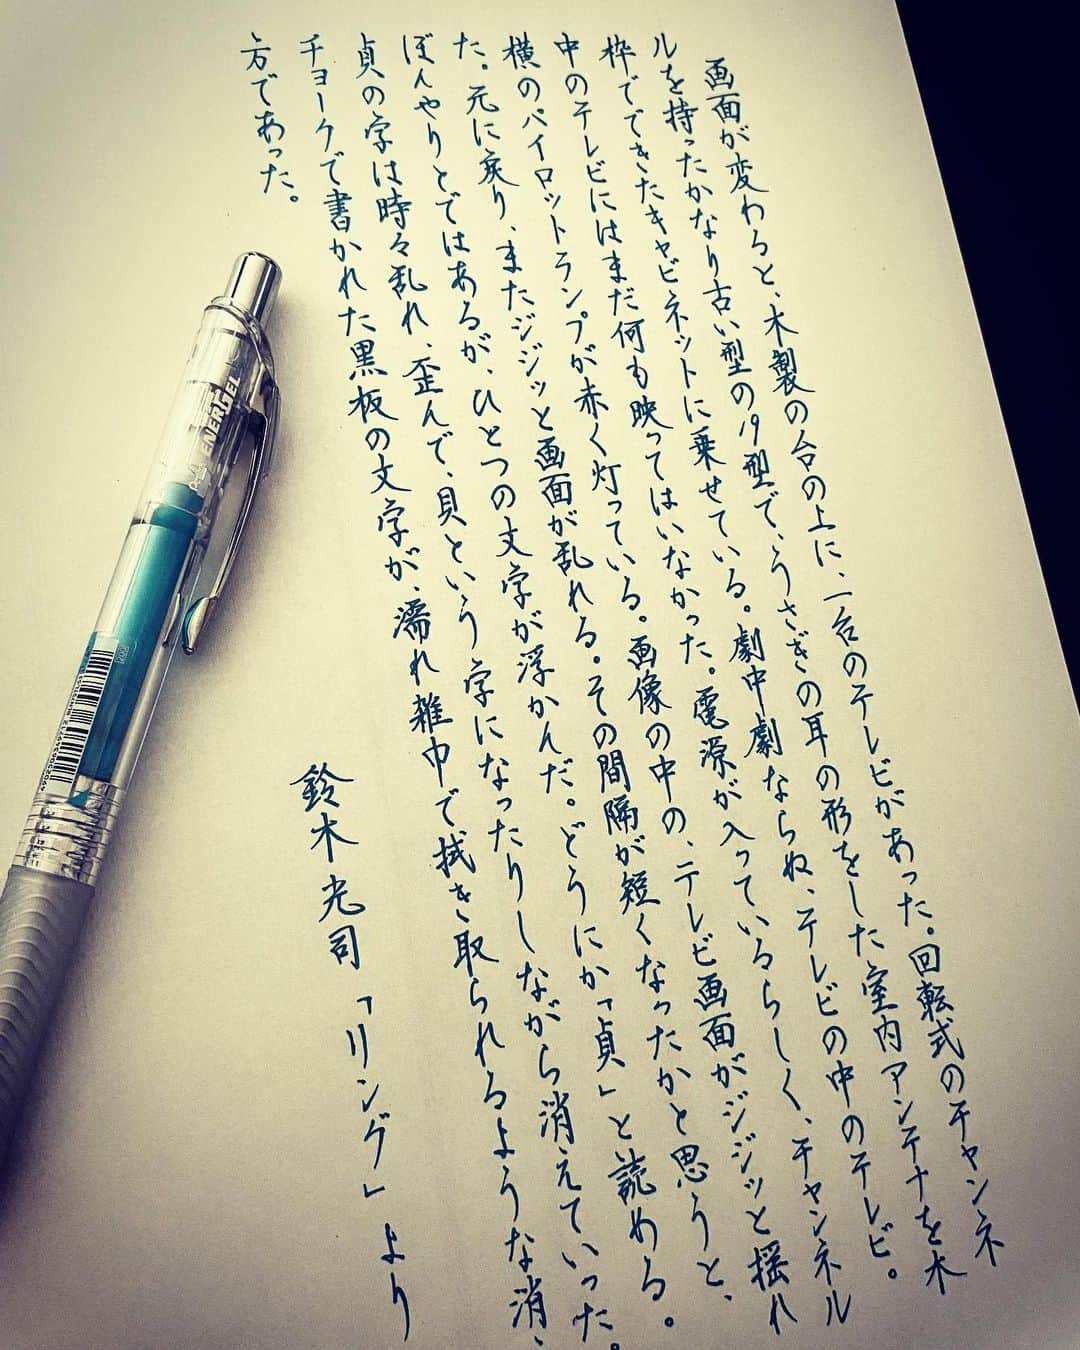 画面が変わると、木製の台の上に、一台のテレビがあった。回転式のチャンネ
ルを持ったかなり古い型の19型で、うさぎの耳の形をした室内アンテナを木
枠でできたキャビネットに乗せている。劇中劇ならぬ、テレビの中のテレビ。
中のテレビにはまだ何も映ってはいなかった。電源が入っているらしく、チャンネル
横のパイロットランプが赤く灯っている。画像の中の、テレビ画面がジジッと揺れ
た。元に戻り、またジジッと画面が乱れる。その間隔が短くなったかと思うと、
ぼんやりとではあるが、ひとつの文字が浮かんだ。どうにか「貞」と読める。
貞の字は時々乱れ、歪んで、貝という字になったりしながら消えていった。
チョークで書かれた黒板の文字が、濡れ雑巾で拭き取られるような消え
方であった。
鈴木光司「リング」より
ENERGEL